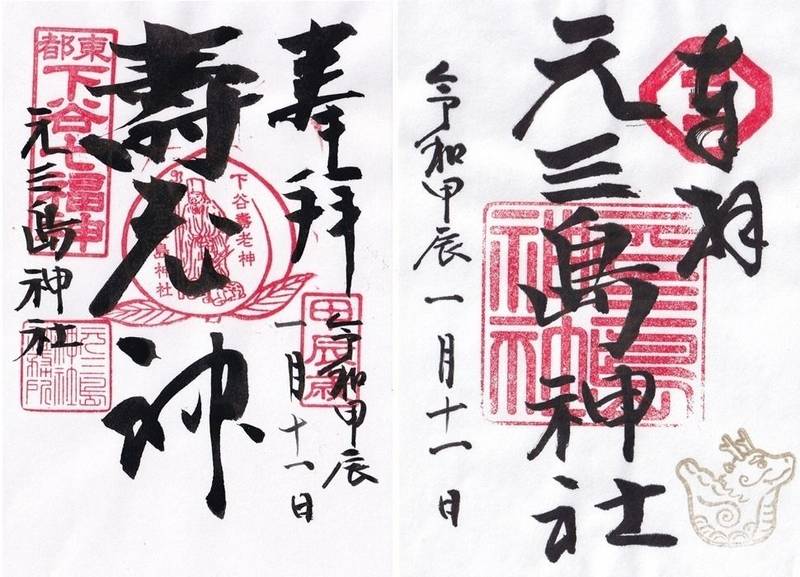 奉拝
令和甲辰
一月十一日
壽老神
元三島神社
東都
下谷七福神
下谷壽老神
島神社
甲辰歳
奉拝
元三島神社
令和甲辰一月十一日
元三島神社